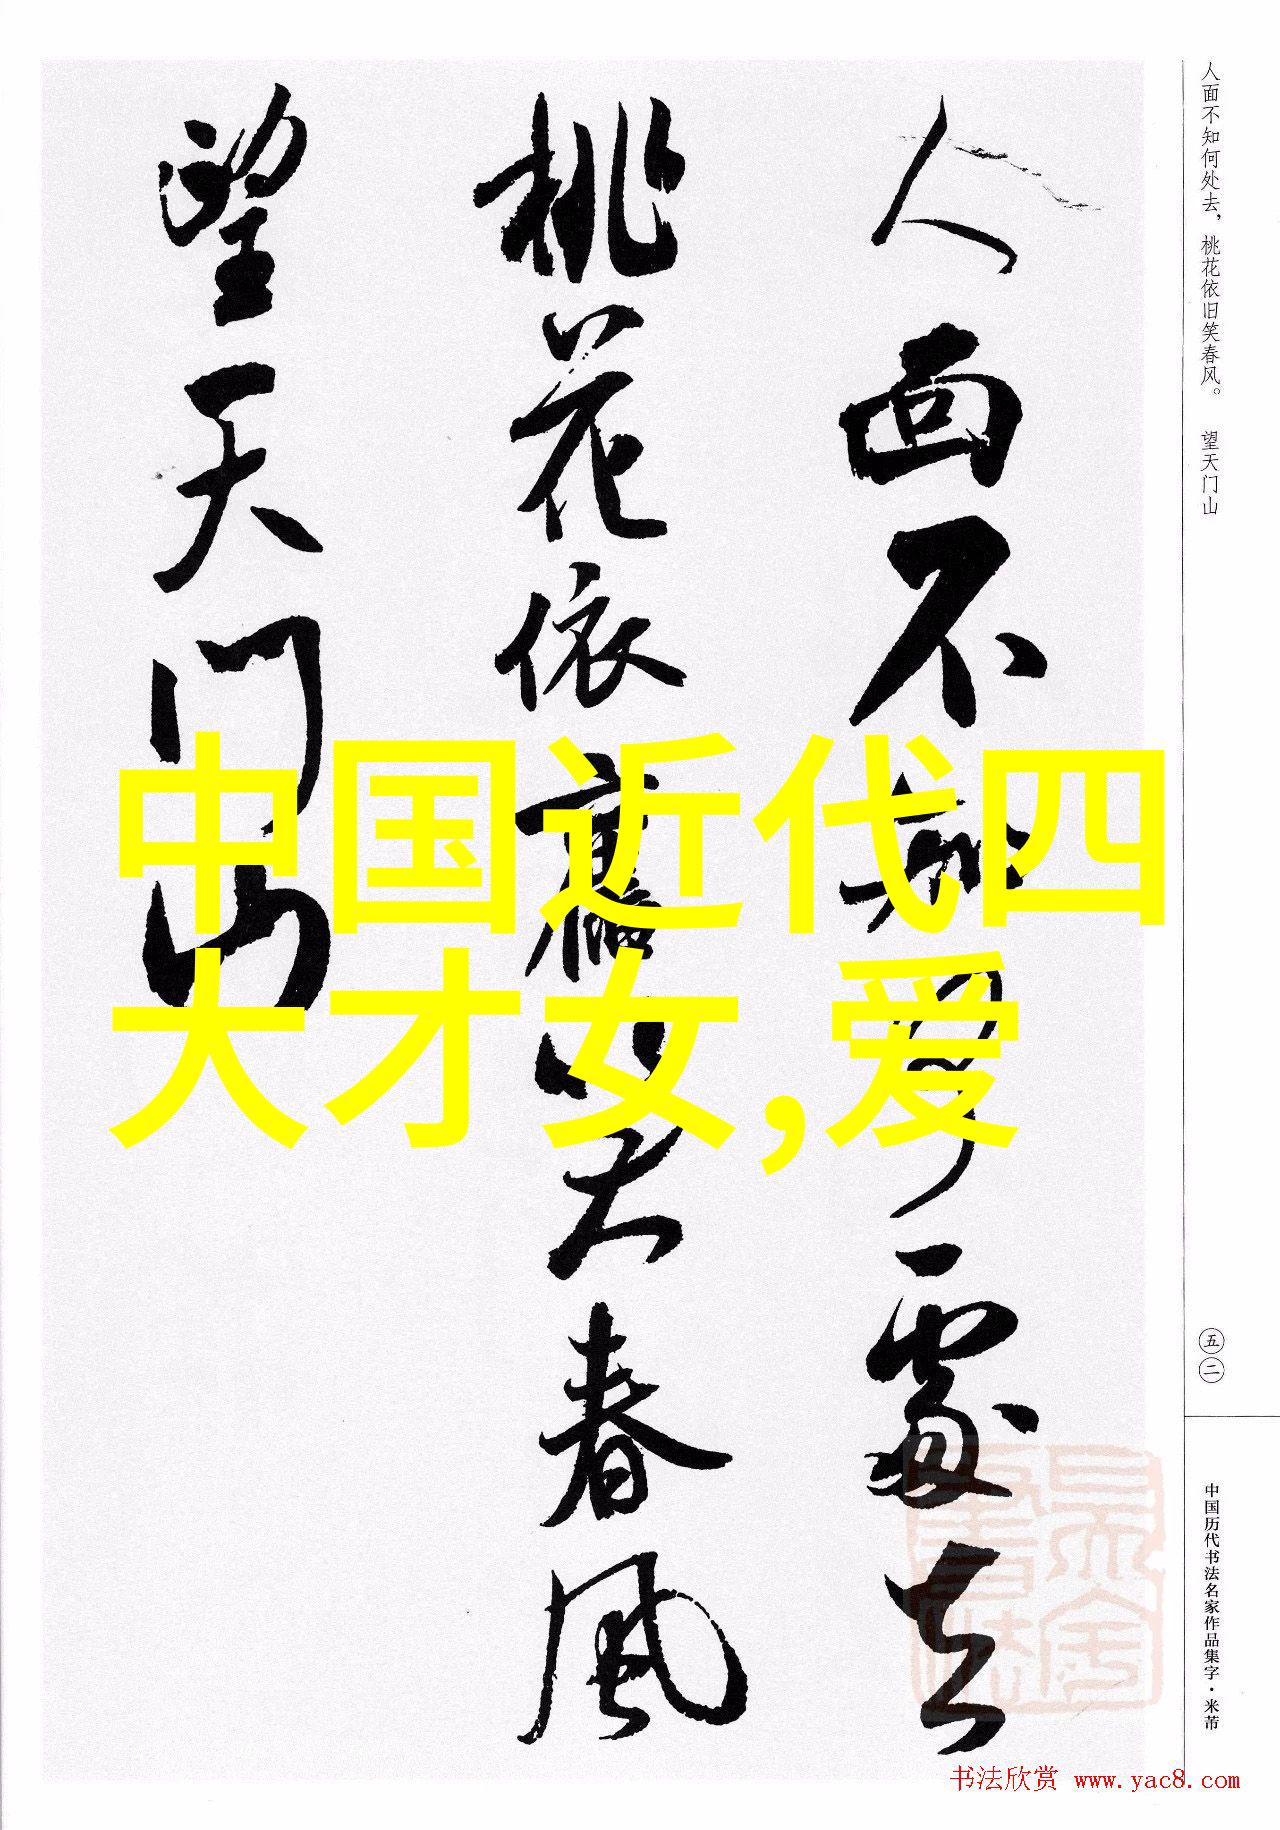 人面不知何處去
桃花依舊笑春風
望天门山
中国近代四
大才女,爱
人面不知何处去，桃花依旧笑春风。 望天门山
五二
中国历代书法名家作品集字·米芾
书法欣赏 www.yac8.com